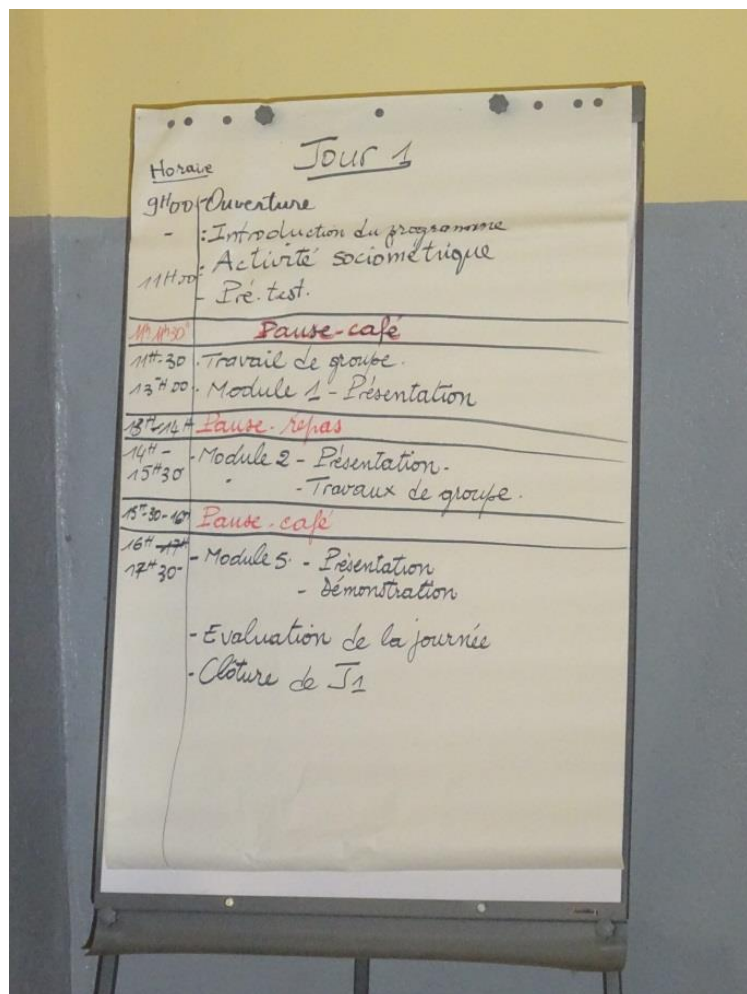 Jour 1
Horaire
9H00 - Ouverture
- : Introduction du programme
: Activité sociométrique
11H00 - Pré-test.
11h-11h30' Pause-café
11H-30 - Travail de groupe.
13H00 - Module 1 - Présentation
13H-14H Pause-repas
14H - - Module 2 - Présentation -
15H30 " - Travaux de groupe.
15H-30-16H Pause-café
16H -17H
17H30- - Module 5. - Présentation
- Démonstration
- Evaluation de la journée
- Clôture de J1